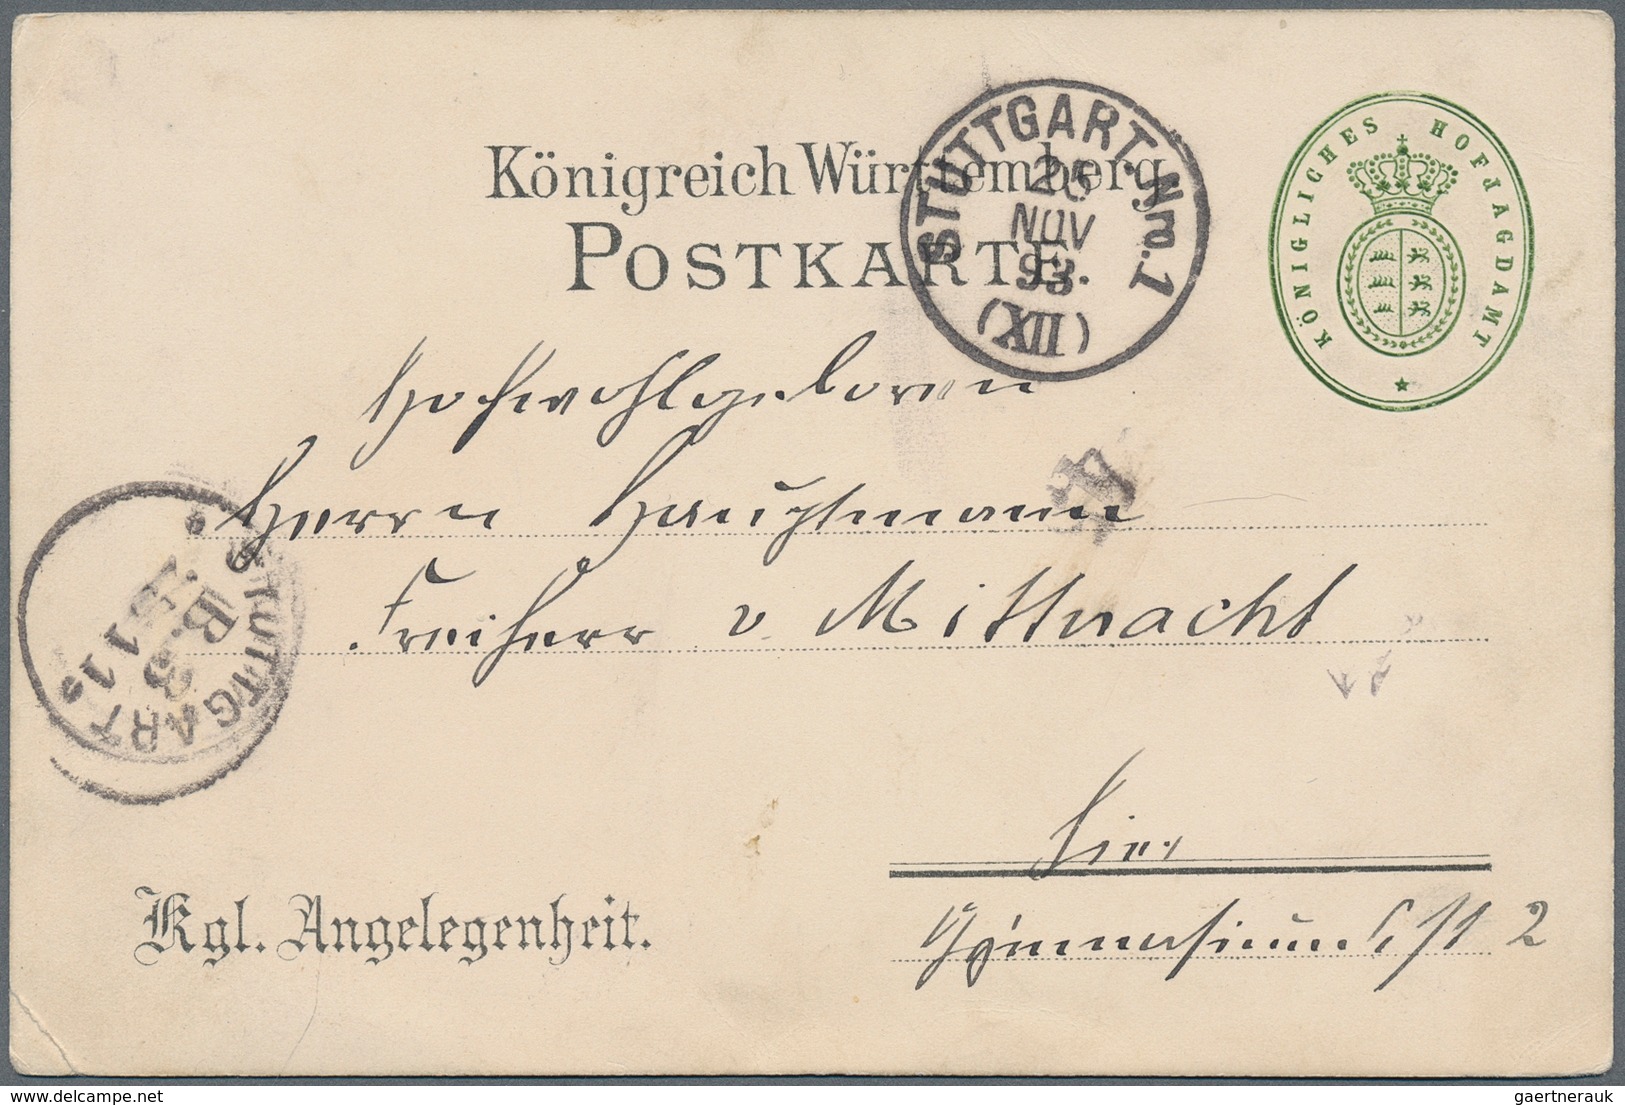 Königreich Württemberg
POSTKARTE.
STUTTGART. Nm. 1
25
NOV
93.
(XII)
KÖNIGLICHES HOFJAGDAMT
Hochwohlgeboren
Herrn Hauptmann
Freiherr v Mittnacht
STUTTGART
B.3
11
Hier
Kgl. Angelegenheit.
Gymnasium 2
www.delcampe.net
gaertnerauk